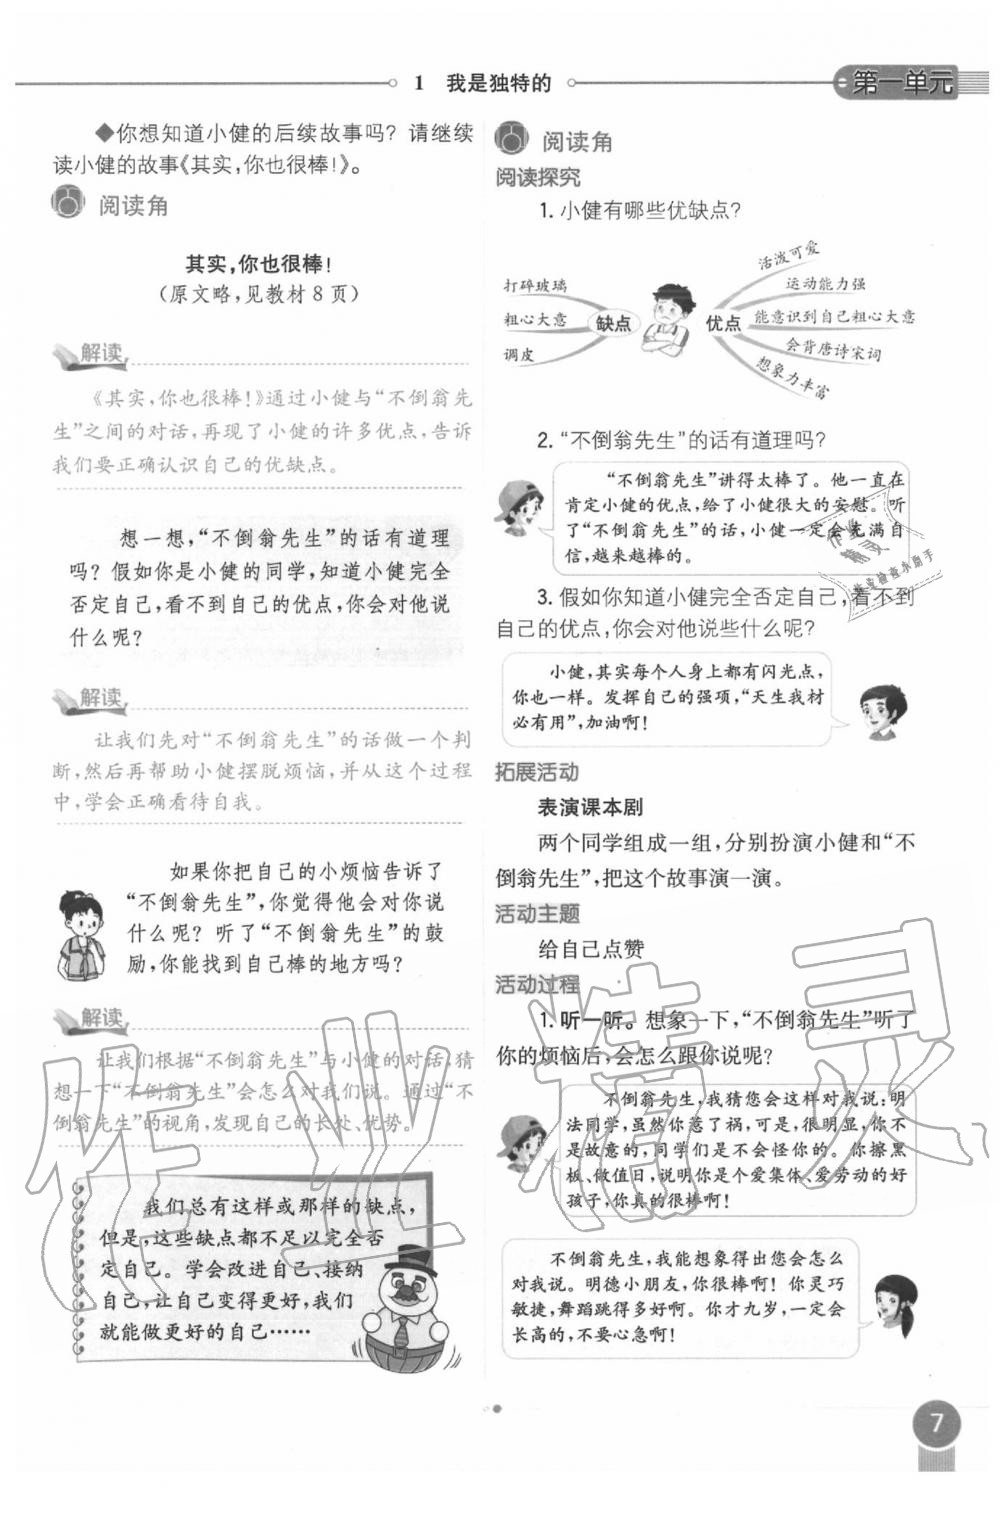 1 我是独特的
第一单元
◆你想知道小健的后续故事吗？请继续
读小健的故事《其实，你也很棒！》。
阅读角
其实，你也很棒！
（原文略，见教材8页）
解读
《其实，你也很棒！》通过小健与“不倒翁先
生”之间的对话，再现了小健的许多优点，告诉
我们要正确认识自己的优缺点。
想一想，“不倒翁先生”的话有道理
吗？假如你是小健的同学，知道小健完全
否定自己，看不到自己的优点，你会对他说
什么呢？
解读
让我们先对“不倒翁先生”的话做一个判
断，然后再帮助小健摆脱烦恼，并从这个过程
中，学会正确看待自我。
如果你把自己的小烦恼告诉了
“不倒翁先生”，你觉得他会对你说
什么呢？听了“不倒翁先生”的鼓
励，你能找到自己棒的地方吗？
解读
让我们根据“不倒翁先生”与小健的对话，猜
想一下“不倒翁先生”会怎么对我们说。通过“不
倒翁先生”的视角，发现自己的长处、优势。
我们总有这样或那样的缺点，
但是，这些缺点都不足以完全否
定自己。学会改进自己、接纳
自己，让自己变得更好，我们
就能做更好的自己……
阅读角
阅读探究
1. 小健有哪些优缺点？
打碎玻璃
粗心大意
调皮
缺点
优点
活泼可爱
运动能力强
能意识到自己粗心大意
会背唐诗宋词
想象力丰富
2. “不倒翁先生”的话有道理吗？
“不倒翁先生”讲得太棒了。他一直在
肯定小健的优点，给了小健很大的安慰。听
了“不倒翁先生”的话，小健一定会充满自
信，越来越棒的。
3. 假如你知道小健完全否定自己，看不到
自己的优点，你会对他说些什么呢？
小健，其实每个人身上都有闪光点，
你也一样。发挥自己的强项，“天生我材
必有用”，加油啊！
拓展活动
表演课本剧
两个同学组成一组，分别扮演小健和“不
倒翁先生”，把这个故事演一演。
活动主题
给自己点赞
活动过程
1. 听一听。想象一下，“不倒翁先生”听了
你的烦恼后，会怎么跟你说呢？
不倒翁先生，我猜您会这样对我说：明
法同学，虽然你惹了祸，可是，很明显，你不
是故意的，同学们是不会怪你的。你擦黑
板、做值日，说明你是个爱集体、爱劳动的好
孩子，你真的很棒啊！
不倒翁先生，我能想象得出您会怎么
对我说。明德小朋友，你很棒啊！你灵巧
敏捷，舞蹈跳得多好啊。你才九岁，一定会
长高的，不要心急啊！
7
作业精灵